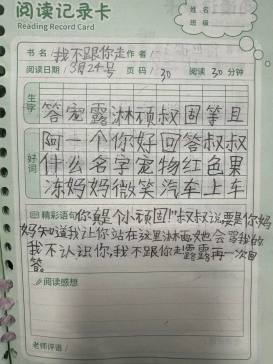 阅读记录卡
Reading Record Card
姓名
班级
书名 我不跟你走 作者
阅读日期 3月24号 页码 30 阅读 30 分钟
生字
答宠露淋顽叔固笔且
好词
阿一个你好回答叔叔
什么名字宠物红色果
冻妈妈微笑汽车上车
精彩语句 你真是个小顽固!"叔叔说要是你妈
妈知道我让你站在这里淋雨她也会骂我的
我不认识你,我不跟你走露露再一次回
答。
阅读感想
老师评语